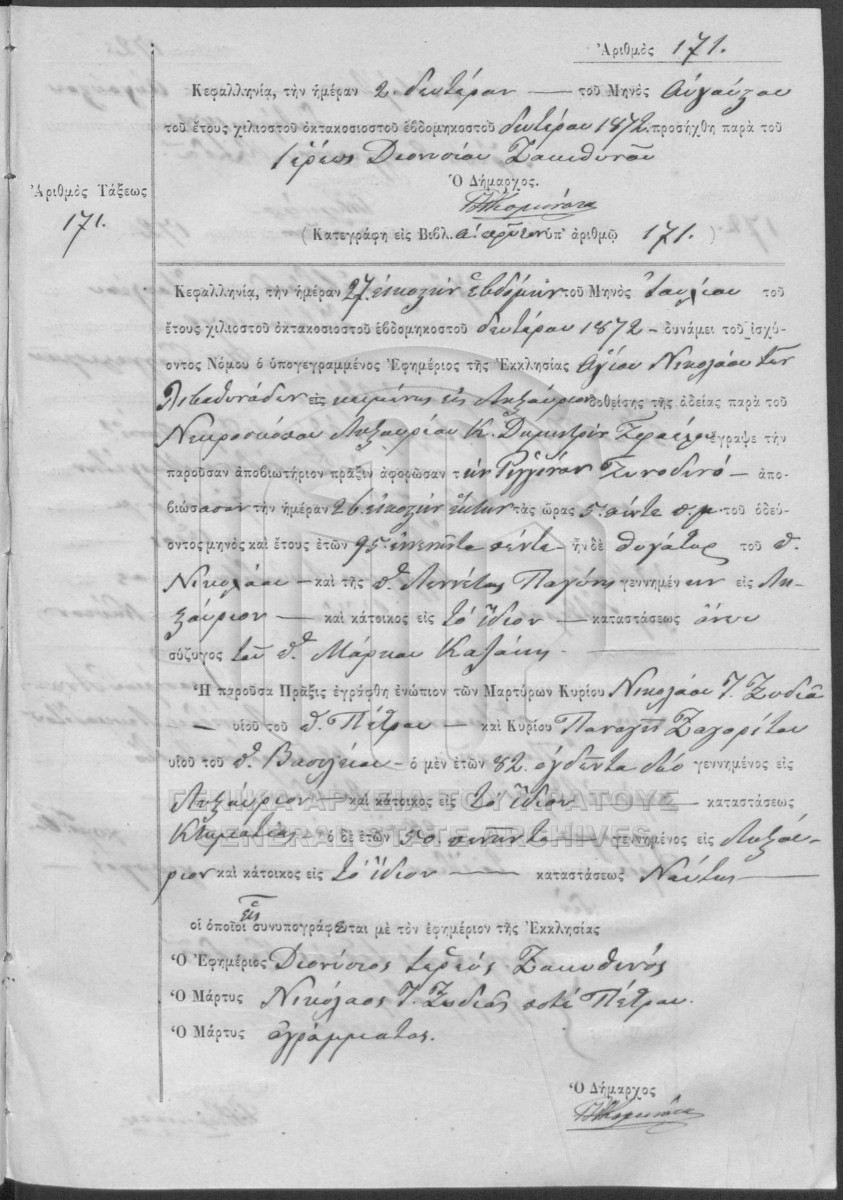 Ἀριθμὸς 171.
Κεφαλληνίᾳ, τὴν ἡμέραν 2. δευτέραν — τοῦ Μηνὸς Αὐγούστου
τοῦ ἔτους χιλιοστοῦ ὀκτακοσιοστοῦ ἑβδομηκοστοῦ δευτέρου 1872. προσήχθη παρὰ τοῦ
Ἱερέως Διονυσίου Ζακυθηνοῦ
Ὁ Δήμαρχος.
Ἀριθμὸς Τάξεως
171.
( Κατεγράφη εἰς Βιβλ. α. πρῶτον ὑπ' ἀριθμῷ 171. )
Κεφαλληνίᾳ, τὴν ἡμέραν 27. εἰκοστὴν ἑβδόμην τοῦ Μηνὸς Ἰουλίου τοῦ
ἔτους χιλιοστοῦ ὀκτακοσιοστοῦ ἑβδομηκοστοῦ δευτέρου 1872 — δυνάμει τοῦ ἰσχύ-
οντος Νόμου ὁ ὑπογεγραμμένος Ἐφημέριος τῆς Ἐκκλησίας Ἁγίου Νικολάου τῶν
εἰς κειμένης εἰς Ληξούριον δοθείσης τῆς ἀδείας παρὰ τοῦ
Νεκροσκόπου Ληξουρίου Κ. Δημητρίου ἔγραψε τὴν
παροῦσαν ἀποβιωτήριον πρᾶξιν ἀφορῶσαν τὴν — ἀπο-
βιώσασαν τὴν ἡμέραν 26. εἰκοστὴν ἕκτην τὰς ὥρας 5. πέντε π.μ. τοῦ ὁδεύ-
οντος μηνὸς καὶ ἔτους ἐτῶν 95. ἐνενῆντα πέντε — ἦν δὲ θυγάτηρ τοῦ π.
Νικολάου — καὶ τῆς π. Παγώνη γεννημένην εἰς Λη-
ξούριον — καὶ κάτοικος εἰς τὸ ἴδιον — καταστάσεως ἄνευ
σύζυγος τοῦ π. Μάρκου
Ἡ παροῦσα Πρᾶξις ἐγράφθη ἐνώπιον τῶν Μαρτύρων Κυρίου Νικολάου Ἰ.
— υἱοῦ τοῦ π. Πέτρου — καὶ Κυρίου Παναγῆ Ζαγορίτου
υἱοῦ τοῦ π. Βασιλείου — ὁ μὲν ἐτῶν 82. ὀγδῆντα δύο γεννημένος εἰς
Ληξούριον — καὶ κάτοικος εἰς τὸ ἴδιον — καταστάσεως
Κτηματίας ὁ δὲ ἐτῶν 50. πενῆντα — γεννημένος εἰς Ληξού-
ριον καὶ κάτοικος εἰς τὸ ἴδιον — καταστάσεως Ναύτης —
ΓΕΝΙΚΑ ΑΡΧΕΙΑ ΤΟΥ ΚΡΑΤΟΥΣ
GENERAL STATE ARCHIVES
οἱ ὁποῖοι εἷς συνυπογράφεται μὲ τὸν ἐφημέριον τῆς Ἐκκλησίας
Ὁ Ἐφημέριος Διονύσιος ἱερεὺς Ζακυθηνός
Ὁ Μάρτυς Νικόλαος Ἰ. ποτὲ Πέτρου.
Ὁ Μάρτυς ἀγράμματος.
Ὁ Δήμαρχος